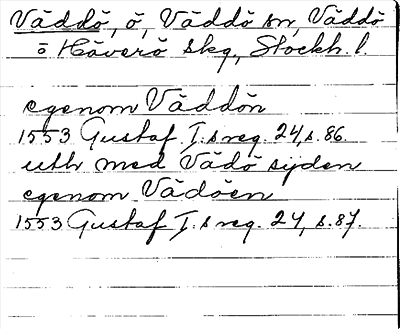 Väddö, ö, Väddö sn, Väddö
o Häverö skg, Stockh. l.
egenom Väddön
1553 Gustaf I:s reg. 24, s. 86.
uth med Vädö sijden
egenom Vädöen
1553 Gustaf I:s reg. 24, s. 87.